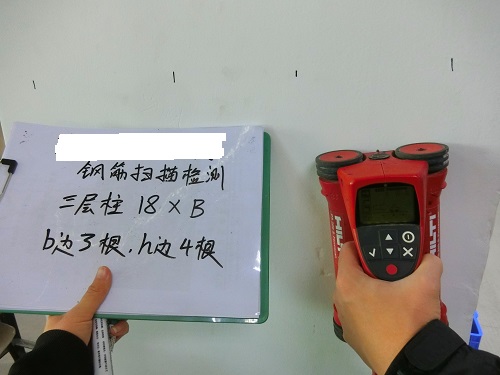 钢筋扫描检测
三层柱 18×B
b边3根，h边4根
HILTI